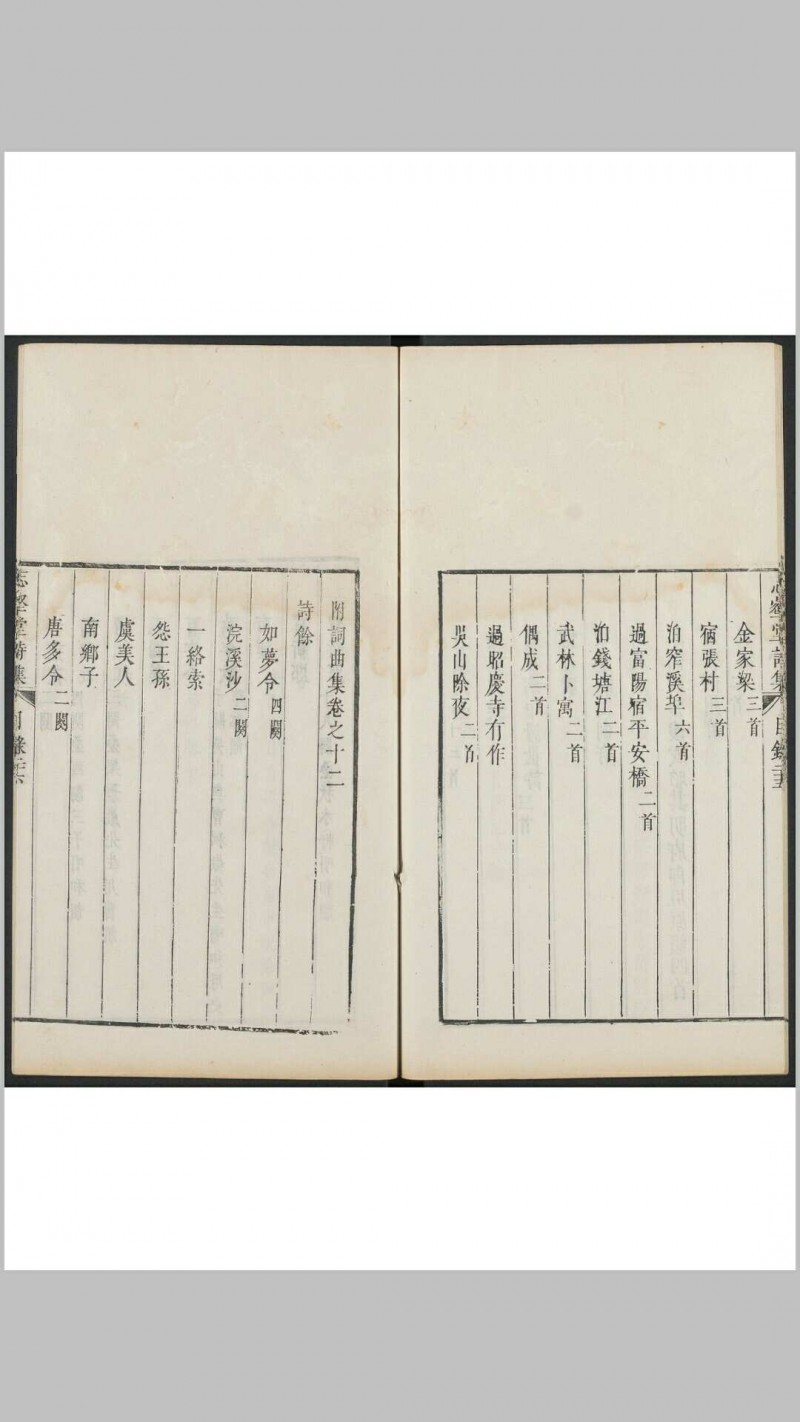 志壑堂詩集 目錄 二五
金家梁 三首
宿張村 三首
泊窄溪埠 六首
過富陽宿平安橋 二首
泊錢塘江 二首
武林卜寓 二首
偶成 二首
過昭慶寺有作
吳山除夜 二首
附詞曲集卷之十二
詩餘
如夢令 四闋
浣溪沙 二闋
一絡索
怨王孫
虞美人
南鄉子
唐多令 二闋
志壑堂詩集 目錄 二六